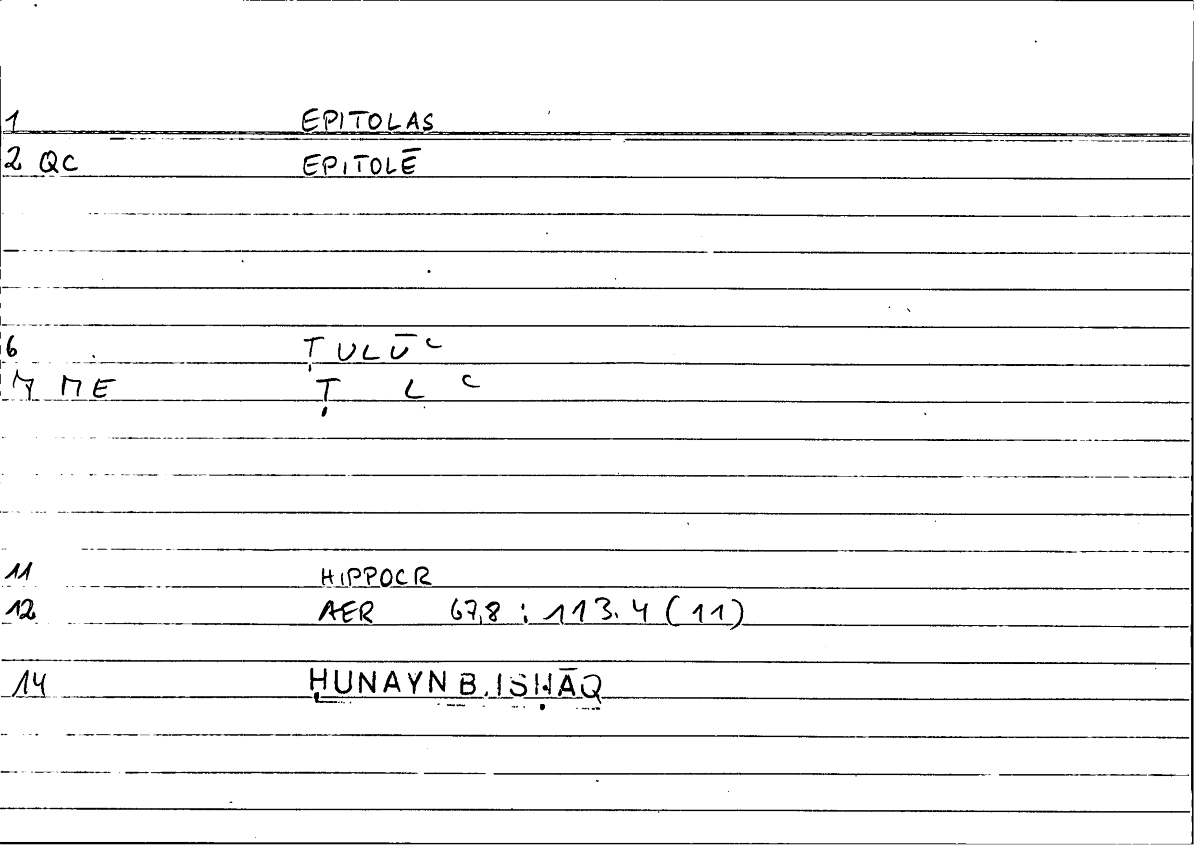 1 EPITOLAS
2 QC EPITOLĒ
6 ṬULŪʿ
7 ME Ṭ L ʿ
11 HIPPOCR
12 AER 67,8 : 113.4 (11)
14 ḤUNAYN B. ISḤĀQ